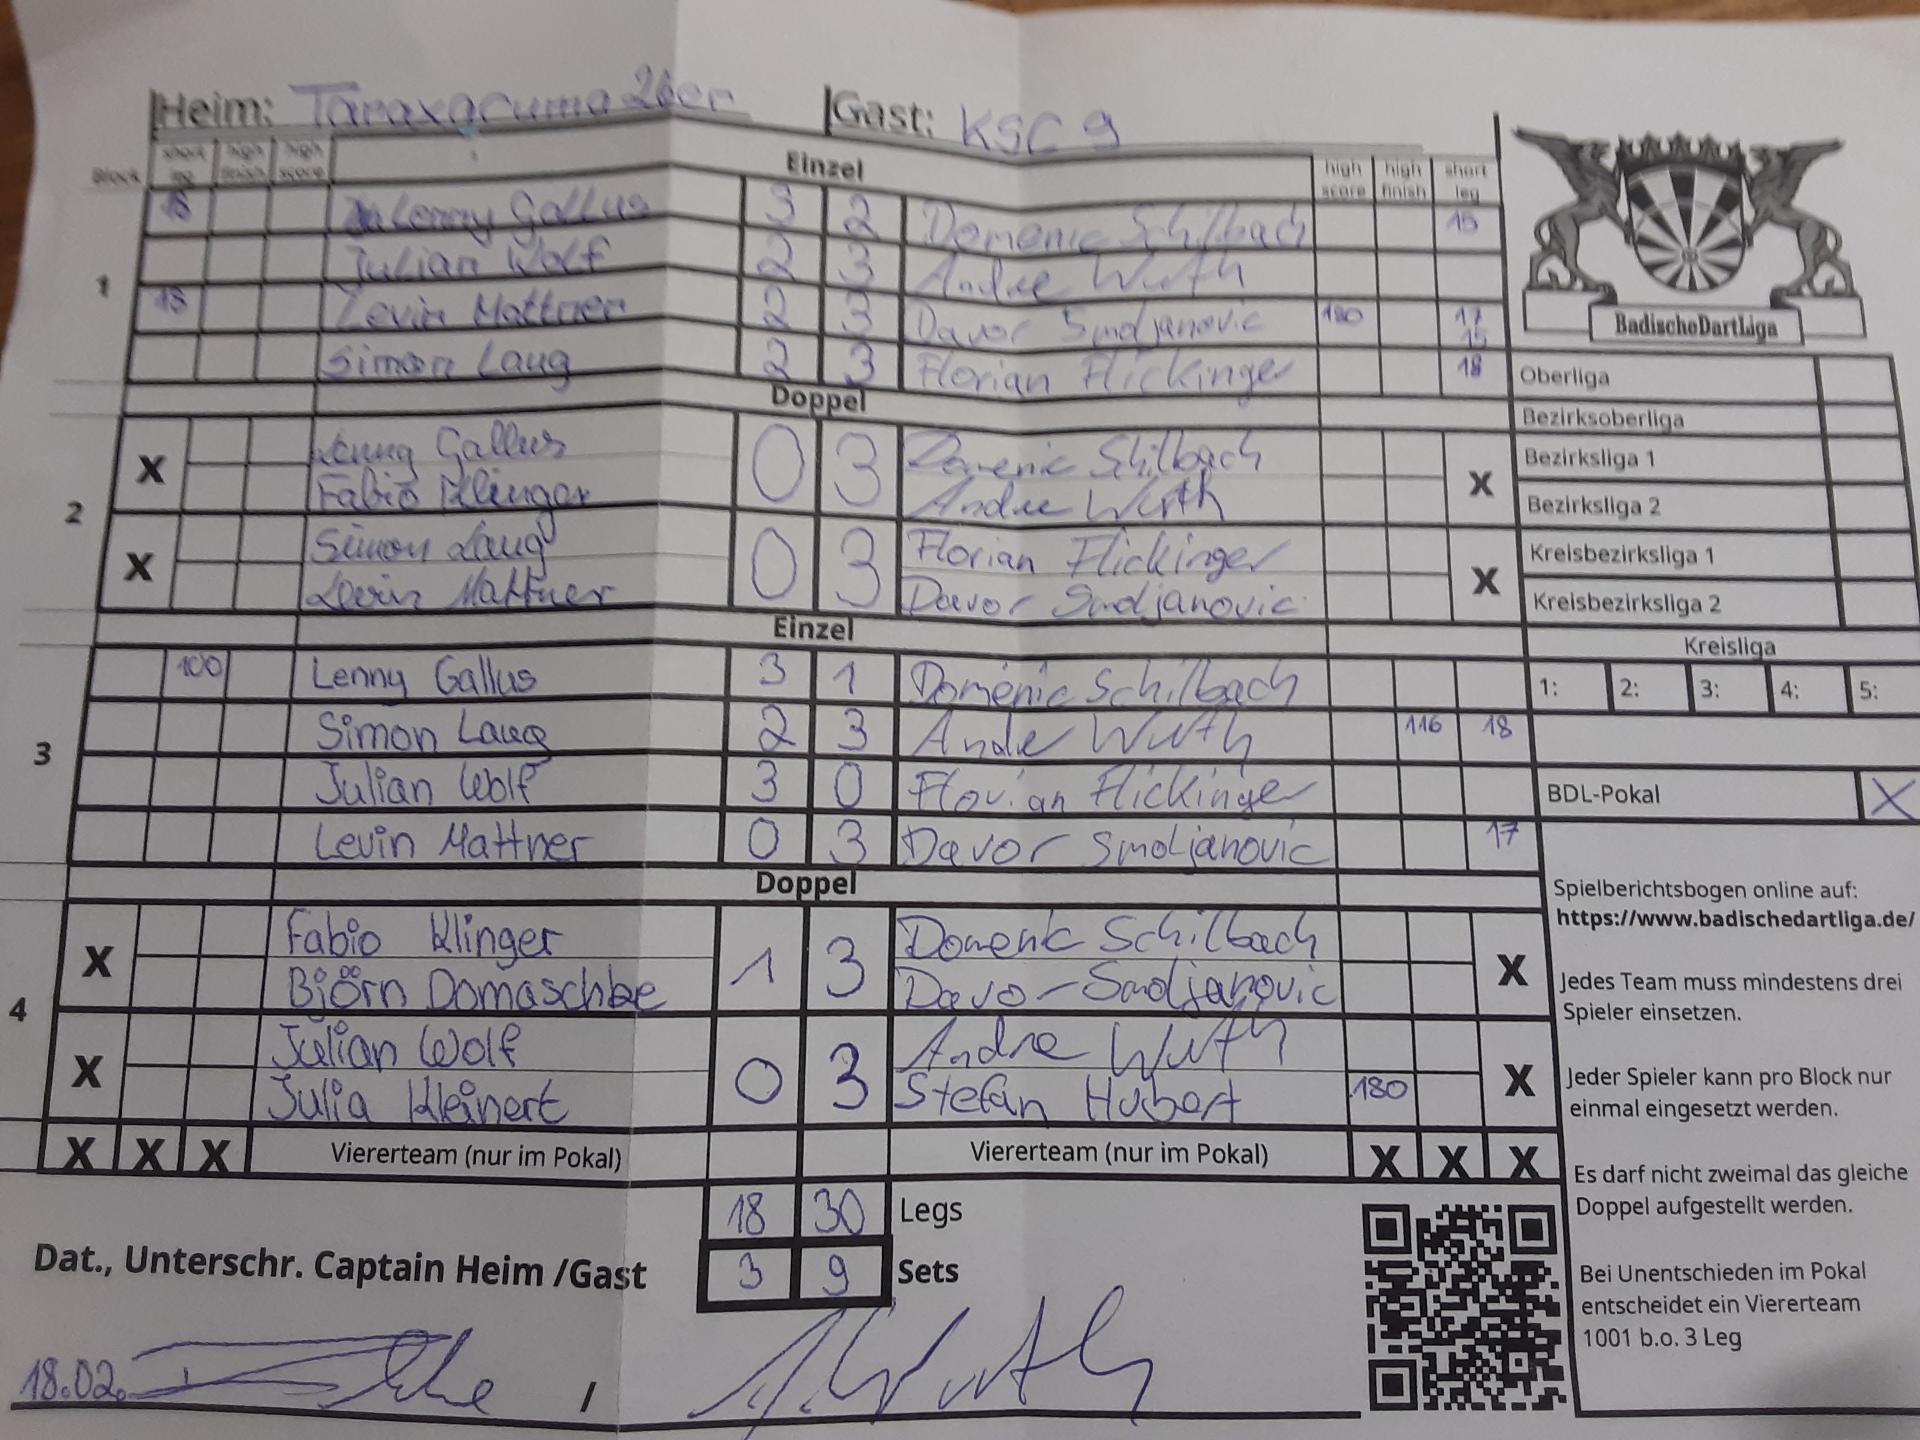 Heim: Taraxacuma 26er Gast: KSC 9
Block short leg high finish high score Einzel high score high finish short leg
1
18 Lenny Gallus 3 2 Domenic Schilbach 15
Julian Wolf 2 3 Andre Wuth
18 Levin Mattner 2 3 Davor Smoljanovic 180 17 15
Simon Laug 2 3 Florian Flickinger 18
Doppel
2
X Lenny Gallus 0 3 Domenic Schilbach X
Fabio Klinger Andre Wuth
X Simon Laug 0 3 Florian Flickinger X
Levin Mattner Davor Smoljanovic
Einzel
3
100 Lenny Gallus 3 1 Domenic Schilbach
Simon Laug 2 3 Andre Wuth 116 18
Julian Wolf 3 0 Florian Flickinger
Levin Mattner 0 3 Davor Smoljanovic 17
Doppel
4
X Fabio Klinger 1 3 Domenic Schilbach X
Björn Domaschke Davor Smoljanovic
X Julian Wolf 0 3 Andre Wuth X
Julia Kleinert Stefan Hubert 180
X X X Viererteam (nur im Pokal) Viererteam (nur im Pokal) X X X
18 30 Legs
3 9 Sets
Dat., Unterschr. Captain Heim /Gast
18.02. /
BadischeDartLiga
Oberliga
Bezirksoberliga
Bezirksliga 1
Bezirksliga 2
Kreisbezirksliga 1
Kreisbezirksliga 2
Kreisliga
1: 2: 3: 4: 5:
BDL-Pokal X
Spielberichtsbogen online auf:
https://www.badischedartliga.de/
Jedes Team muss mindestens drei
Spieler einsetzen.
Jeder Spieler kann pro Block nur
einmal eingesetzt werden.
Es darf nicht zweimal das gleiche
Doppel aufgestellt werden.
Bei Unentschieden im Pokal
entscheidet ein Viererteam
1001 b.o. 3 Leg